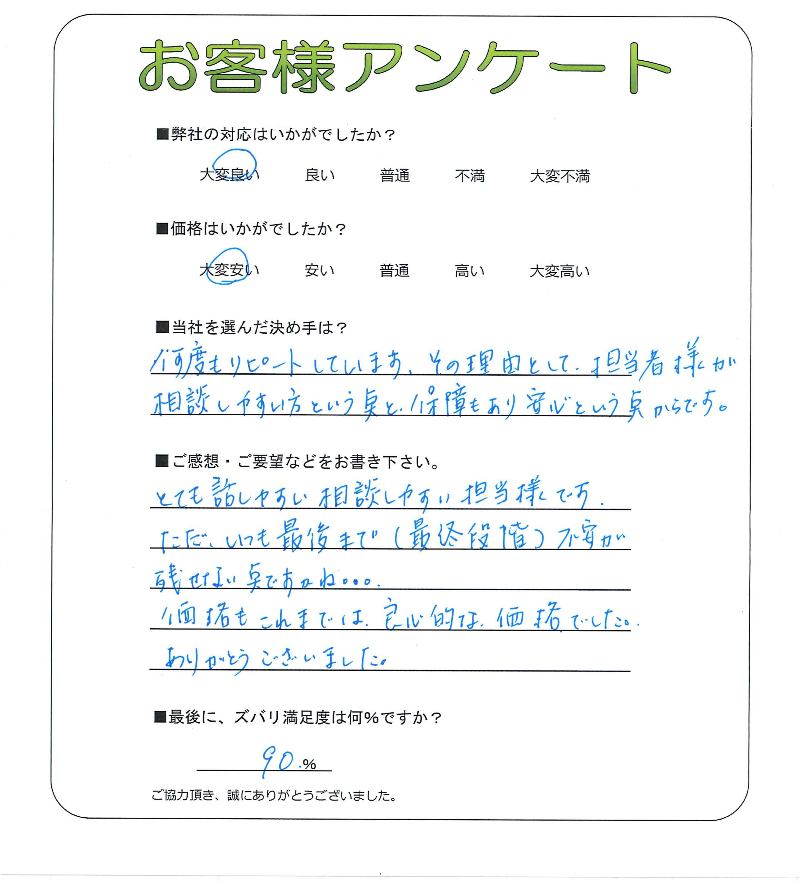 お客様アンケート
■弊社の対応はいかがでしたか？
大変良い 良い 普通 不満 大変不満
■価格はいかがでしたか？
大変安い 安い 普通 高い 大変高い
■当社を選んだ決め手は？
何度もリピートしています、その理由として、担当者様が
相談しやすい方という点と、保障もあり安心という点からです。
■ご感想・ご要望などをお書き下さい。
とても話しやすい相談しやすい担当様です。
ただ、いつも最後まで（最終段階）不安が
残せない点ですかね。。。
価格もこれまでは、良心的な、価格でした。
ありがとうございました。
■最後に、ズバリ満足度は何％ですか？
90.%
ご協力頂き、誠にありがとうございました。